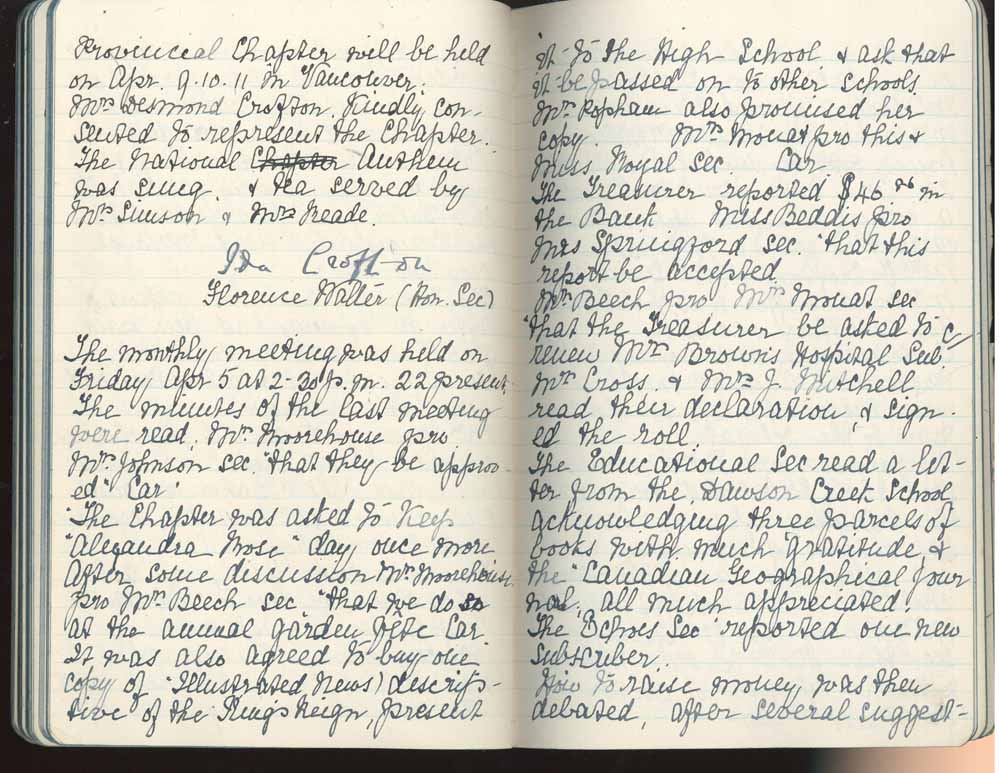 Provincial Chapter will be held
on Apr. 9.10.11 in Vancouver.
Mrs Desmond Crofton kindly con-
sented to represent the Chapter.
The National Chapter Anthem
was sung & tea served by
Mrs Simson & Mrs Reade.
Ida Crofton
Florence Walter (Hon. Sec)
The monthly meeting was held on
Friday Apr 5 at 2-30 p.m. 22 present.
The minutes of the last meeting
were read, Mrs Moorehouse pro
Mrs Johnson sec "that they be approv-
ed" Car.
The Chapter was asked to keep
"Alexandra Rose" day once more
After some discussion Mrs Moorehouse
pro Mrs Beech sec, "that we do so
at the annual garden fête Car.
It was also agreed to buy one
copy of "Illustrated News) descrip-
tive of the King's Reign, present
it to the High School, & ask that
it be passed on to other schools.
Mrs Popham also promised her
copy. Mrs Mouat pro this &
Miss Royal sec. Car.
The Treasurer reported $46 in
the Bank Miss Beddis pro
Mrs Springford sec. "that this
report be accepted.
Mrs Beech pro Mrs Mouat sec
"that the Treasurer be asked to
renew Mrs Brown's Hospital Sub.
Mrs Cross & Mrs J. Mitchell
read their declaration, & sign-
ed the roll.
The Educational Sec read a let-
ter from the Dawson Creek School
acknowledging three parcels of
books with much gratitude, &
the "Canadian Geographical Jour
nal. all much appreciated.
The "Echoes Sec" reported one new
subscriber.
How to raise money was then
debated, after several suggest-